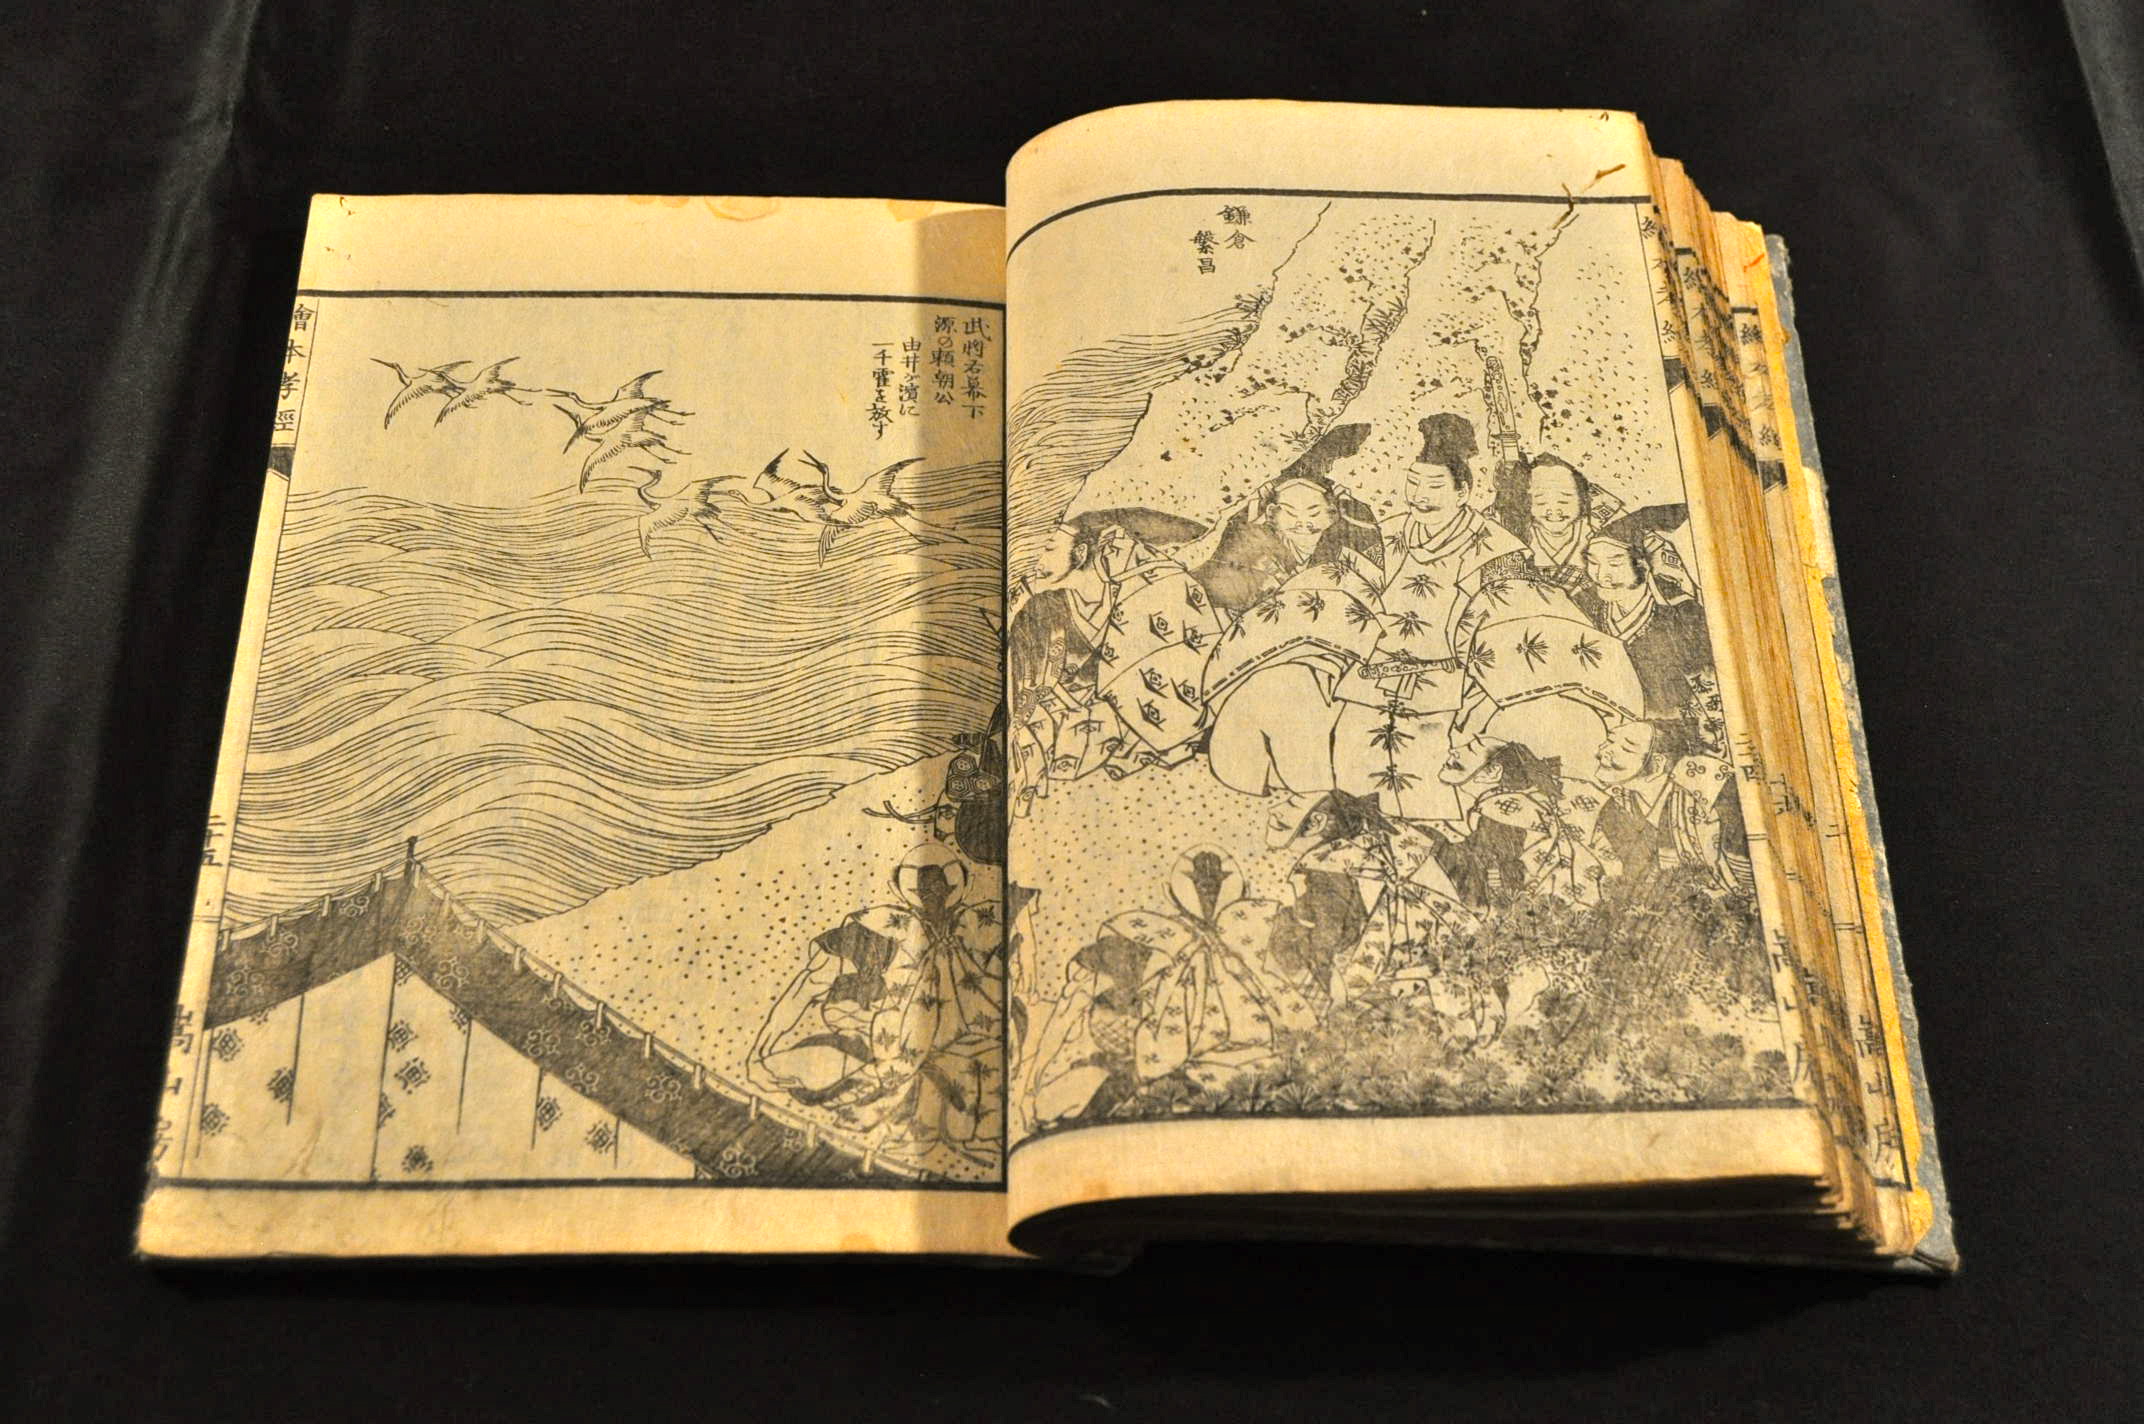 鎌倉
繁昌
武将右幕下
源の頼朝公
由井ヶ濱に
一千霍を放す
繪本孝經
二十五
嵩山房